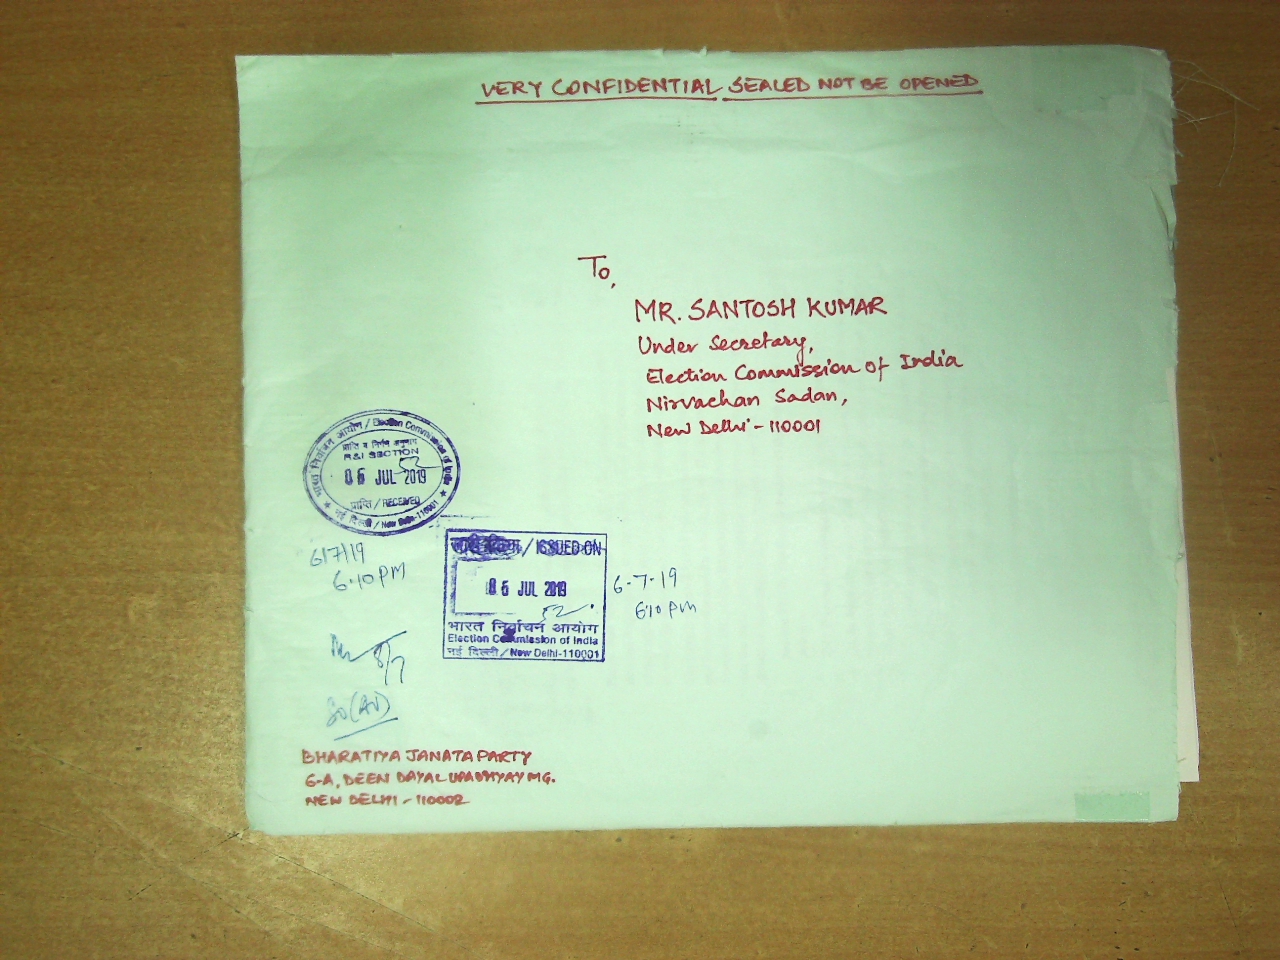 VERY CONFIDENTIAL SEALED NOT BE OPENED
To,
MR. SANTOSH KUMAR
Under Secretary,
Election Commission of India
Nirvachan Sadan,
New Delhi - 110001
भारत निर्वाचन आयोग / Election Commission of India
प्राप्ति व निर्गम अनुभाग
R&I SECTION
06 JUL 2019
प्राप्ति / RECEIVED
नई दिल्ली / New Delhi-110001
6/7/19
6.10 PM
/ ISSUED ON
06 JUL 2019
भारत निर्वाचन आयोग
Election Commission of India
नई दिल्ली / New Delhi-110001
6-7-19
6.10 PM
8/7
BHARATIYA JANATA PARTY
6-A, DEEN DAYAL UPADHYAY MG.
NEW DELHI - 110002